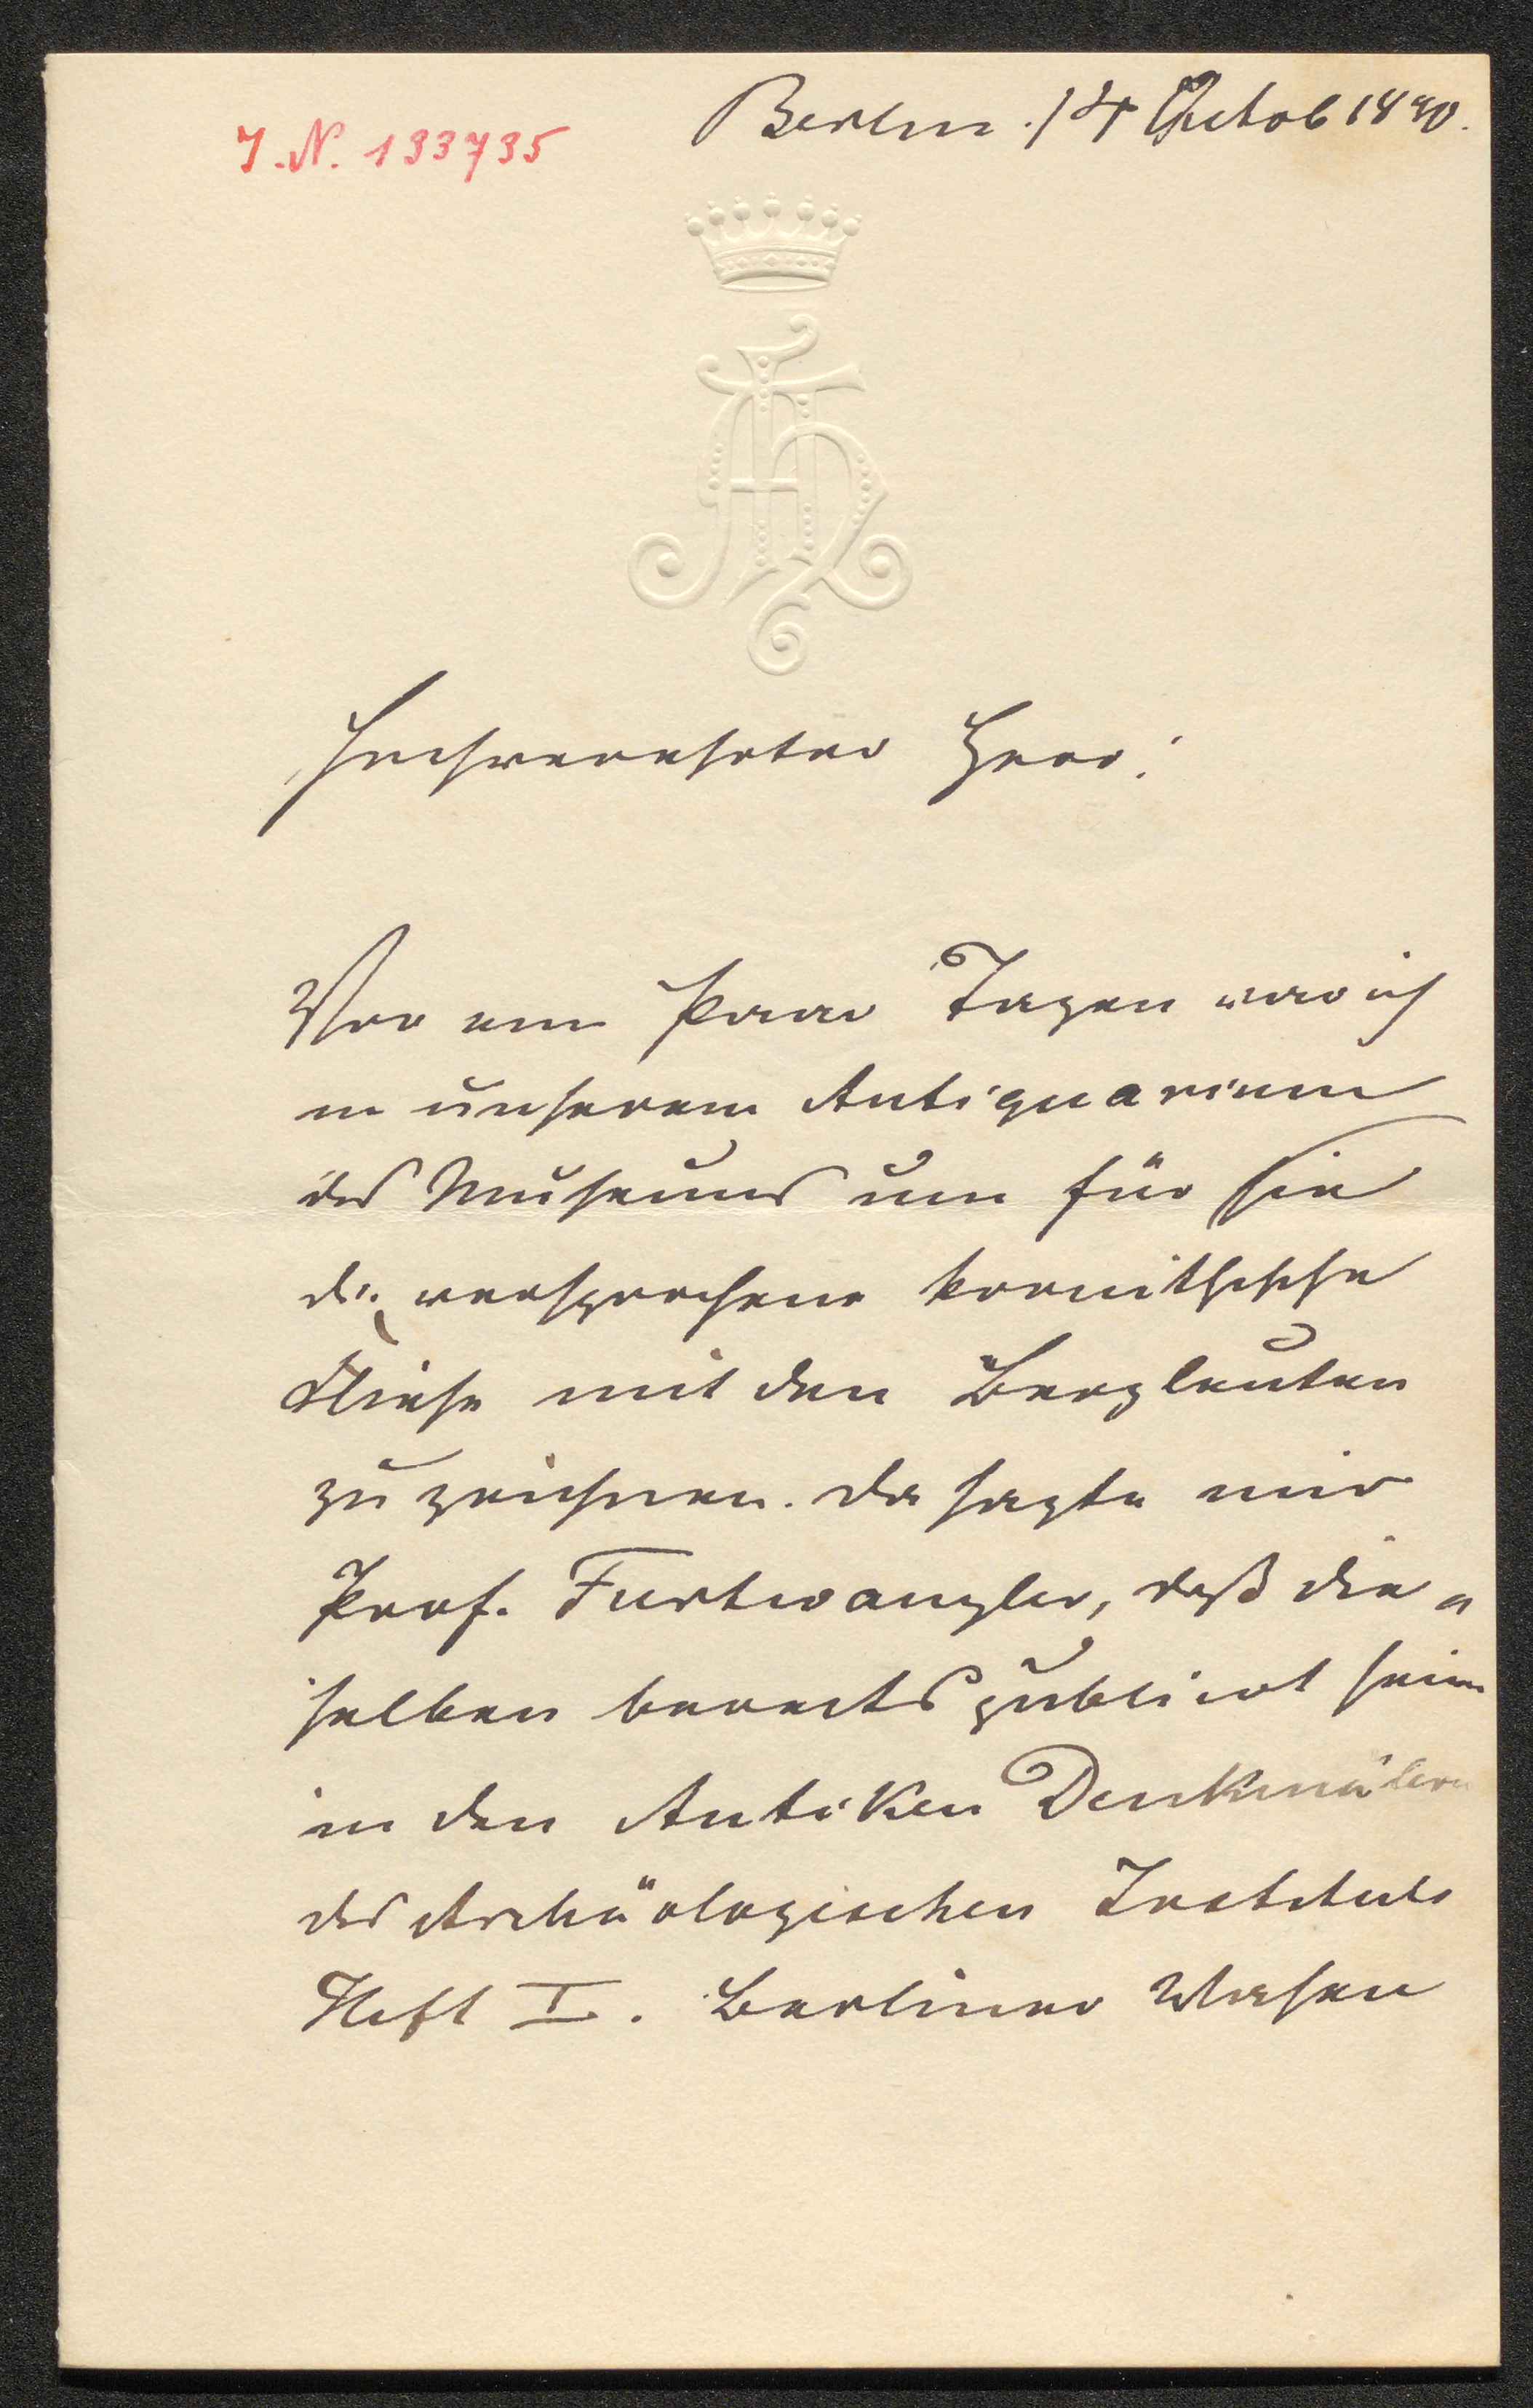 Berlin. 14 Octob 1890.
I.N. 133735
AH
Hochverehrter Herr!
Vor ein Paar Tagen war ich
in unserem Antiquarium
des Museums um für Sie
die versprochene korinthische
Fliese mit den Bergleuten
zu zeichnen. Da sagte mir
Prof. Furtwangler, daß die„
selben bereits publicirt seien
in den Antiken Denkmälern
des Archäologischen Instituts
Heft I. Berliner Vasen